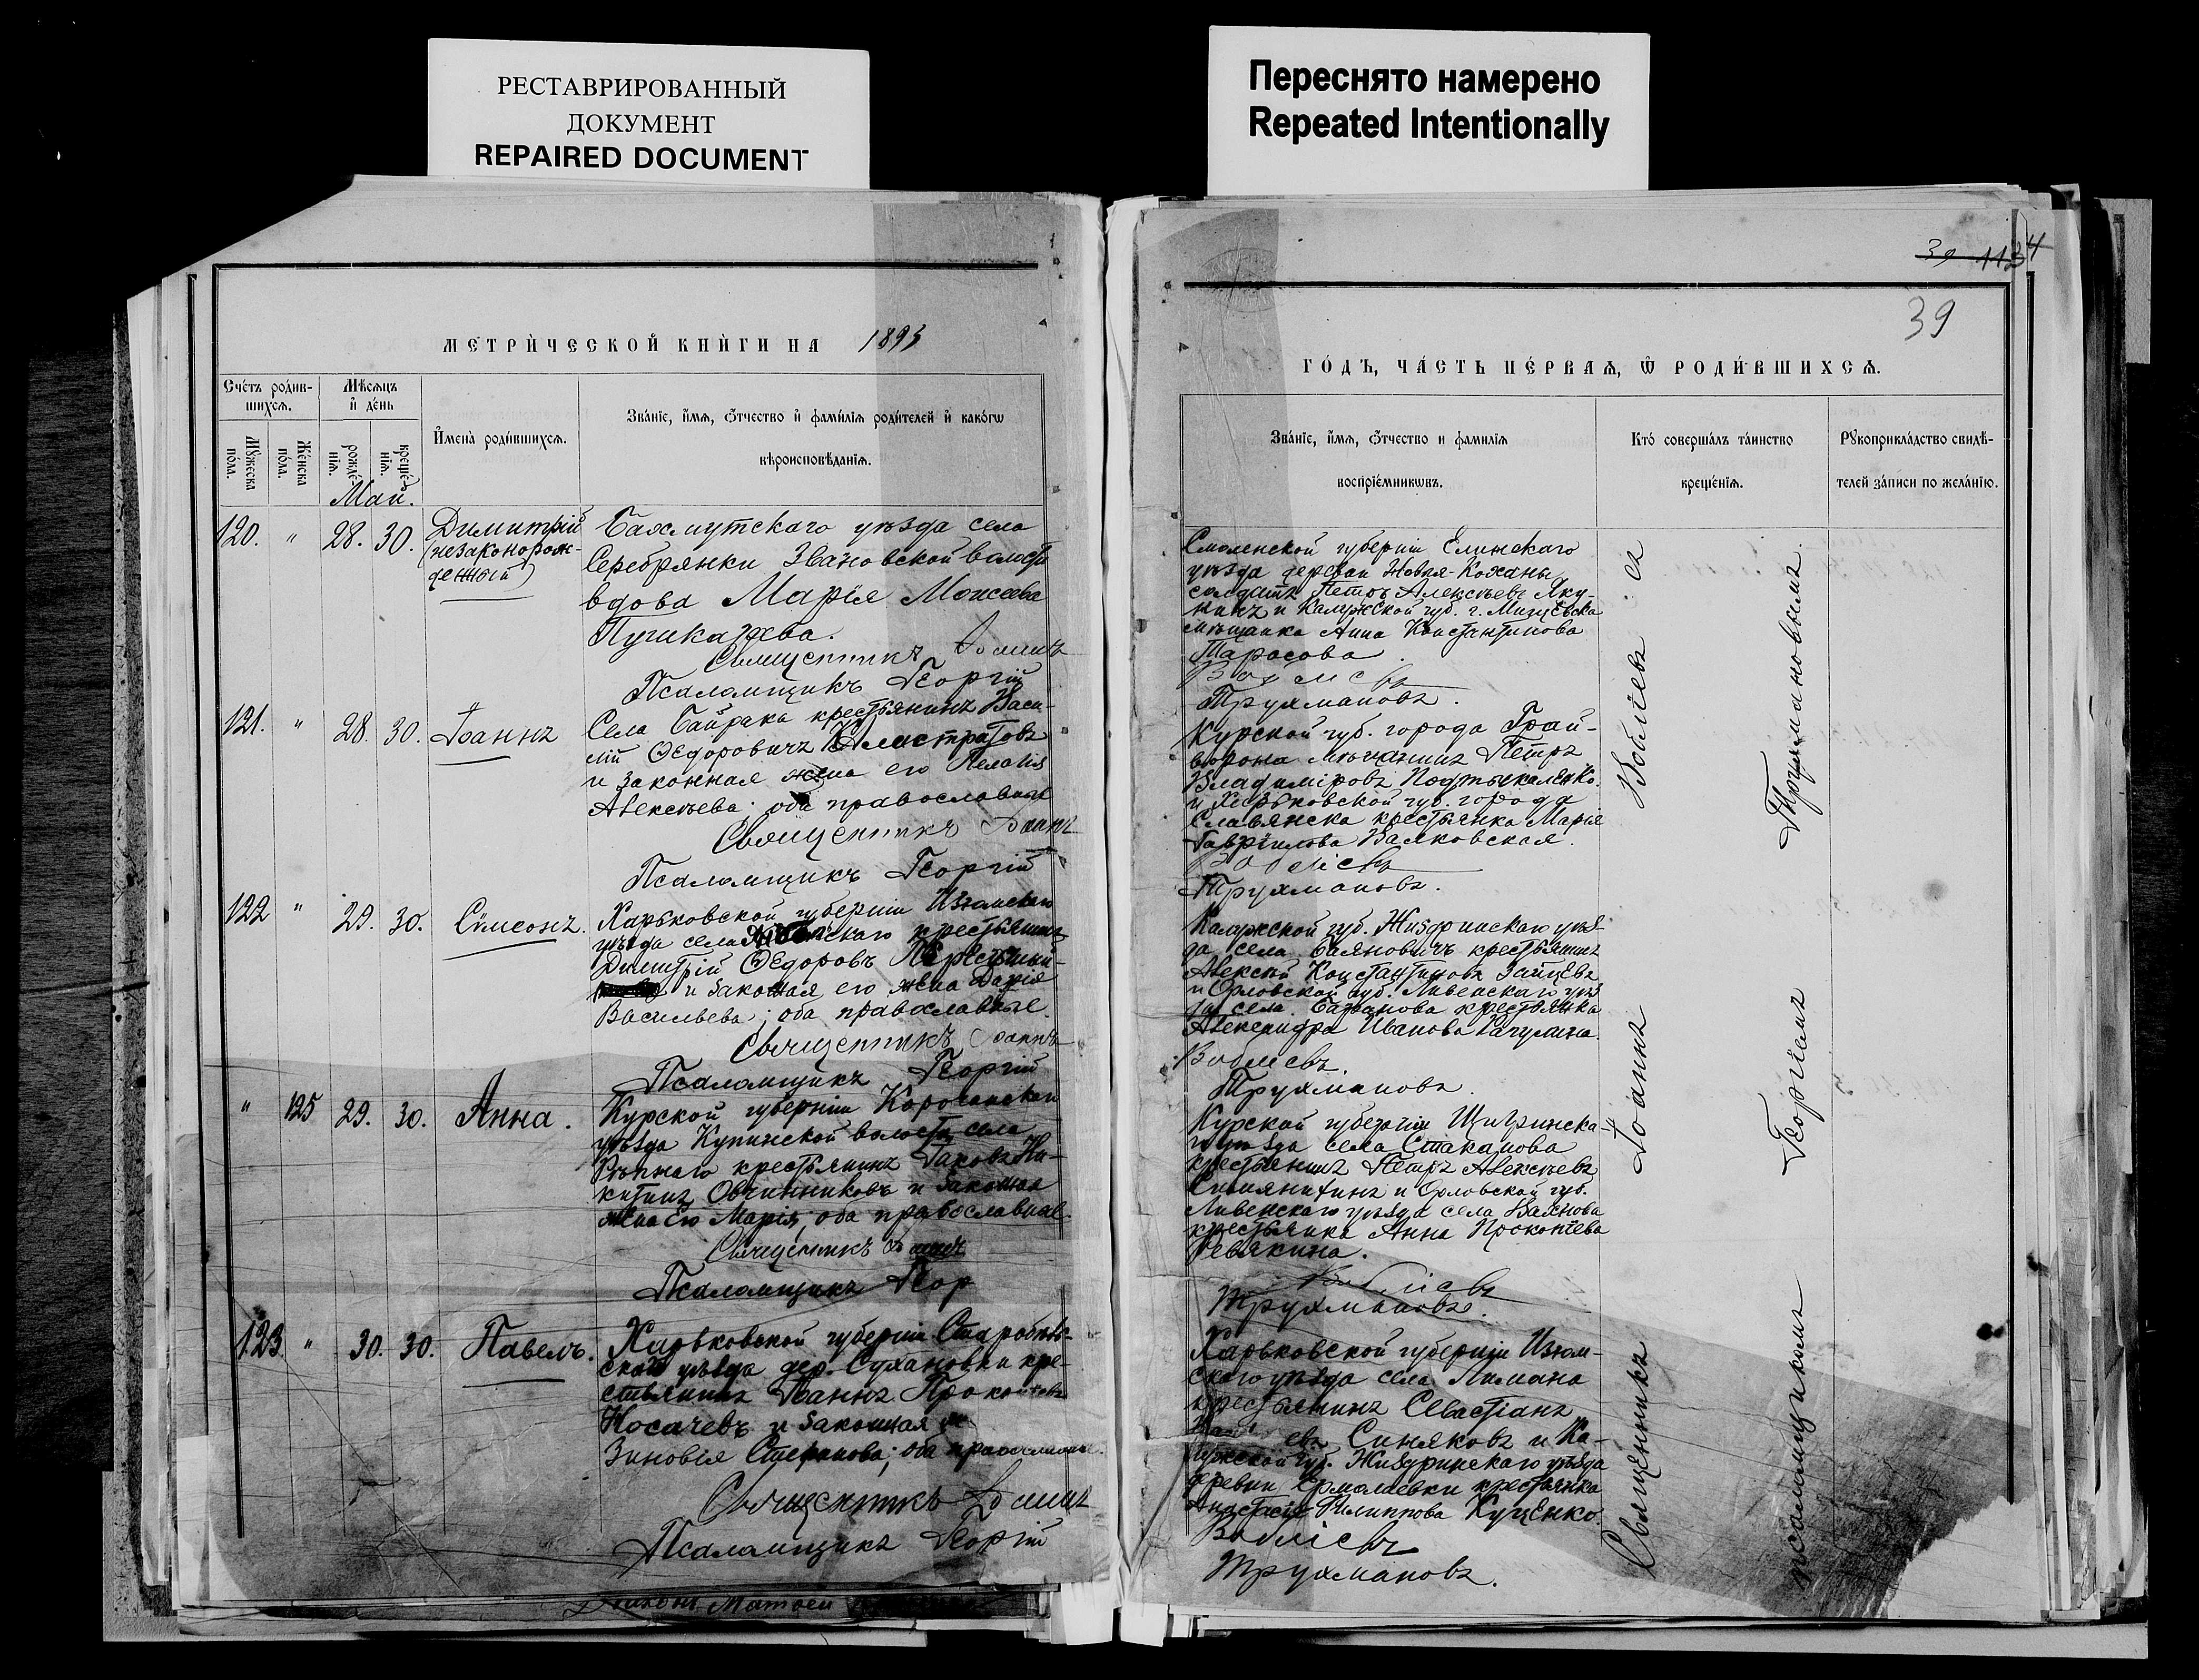 РЕСТАВРИРОВАННЫЙ
ДОКУМЕНТ
REPAIRED DOCUMENT
Переснято намерено
Repeated Intentionally
МЕТРИ́ЧЕСКОЙ КНИ́ГИ НА 1893
Сче́тъ роди́в-
шихсѧ.
Мѣсѧцъ
и҆ де́нь
Мꙋ́жеска
по́ла.
Же́нска
по́ла.
рожде́-
нїѧ.
креще́-
нїѧ.
И҆мена̀ роди́вшихсѧ.
Зва́нїе, и҆́мѧ, ѻ҆́тчество и҆ фами́лїѧ роди́телей и҆ како́гѡ
вѣроисповѣ́данїѧ.
Май.
120. " 28. 30. Димитрій
(незаконорож-
денный)
Бахмутскаго уѣзда села
Серебрянки Звановской волости
вдова Марія
Священникъ Іоаннъ
Псаломщикъ Георгій
121. " 28. 30. Іоаннъ
Села Байрака крестьянинъ Васи-
лій Ѳедоровичъ Калистратовъ
и законная жена его Пелагія
Алексѣева; оба православные
Священникъ Іоаннъ
Псаломщикъ Георгій
122 " 29. 30. Сѵмеонъ.
Харьковской губерніи Изюмскаго
уѣзда села крестьянинъ
Димитрій Ѳедоровъ
и законная его жена Дарія
Васильева; оба православные.
Священникъ Іоаннъ
Псаломщикъ Георгій
" 125 29. 30. Анна.
Курской губерніи Корочанскаго
уѣзда Купинской волости села
крестьянинъ Іаковъ Ни-
китинъ Овчинниковъ и законная
жена его Марія; оба православные.
Священникъ Іоаннъ
Псаломщикъ Геор
123. " 30. 30. Павелъ.
Харьковской губерніи Старобѣль-
скаго уѣзда дер. Сухановки кре-
стьянинъ Іоаннъ Прокопіевъ
Носачевъ и законная
Зиновія Стефанова; оба православные.
Священникъ Іоаннъ
Псаломщикъ Георгій
Діаконъ Матѳей
39 1134
39
ГО́ДЪ, ЧА́СТЬ ПЕ́РВАѦ, Ѿ РОДИ́ВШИХСѦ.
Зва́нїе, и҆́мѧ, ѻ҆́тчество и фамилїѧ
воспрїе́мникѡвъ.
Кто̀ соверша́лъ та́инство
креще́нїѧ.
Рꙋкоприкла́дство свидѣ́-
телей за́писи по жела́нїю.
Смоленской губерніи Елинскаго
уѣзда деревни Новыя-Коханы
солдатъ Петръ Алексѣевъ Яку-
нинъ и Калужской губ. г. Мищевска
мѣщанка Анна Константинова
Тарасова.
Воблiевъ
Трухмановъ.
Курской губ. города Грай-
ворона мѣщанинъ Петръ
Владиміровъ
и Харьковской губ. города
Славянска крестьянка Марія
Гаврiилова Валковская.
Воблiевъ
Трухмановъ.
Калужской губ. Жиздринскаго уѣз-
да села крестьянинъ
Алексѣй Константиновъ Зайцевъ
и Орловской губ. Ливенскаго уѣз
да села Баранова крестьянка
Александра Иванова
Воблiевъ.
Трухмановъ.
Курской губерніи Щигринска-
го уѣзда села Стаканова
крестьянинъ Петръ Алексѣевъ
и Орловской губ.
Ливенскаго уѣзда села
крестьянка Анна Прокопіева
Ревякина.
Воблiевъ
Трухмановъ.
Харьковской губерніи Изюм-
скаго уѣзда села Лимана
крестьянинъ Севастіанъ
Синяковъ и Ка-
лужской губ. Жиздринскаго уѣзда
деревни Ермолаевки крестьянка
Анастасія Филиппова Куценко.
Воблiевъ
Трухмановъ.
Священникъ Іоаннъ Воблiевъ съ
псаломщикомъ Георгіемъ Трухмановымъ.